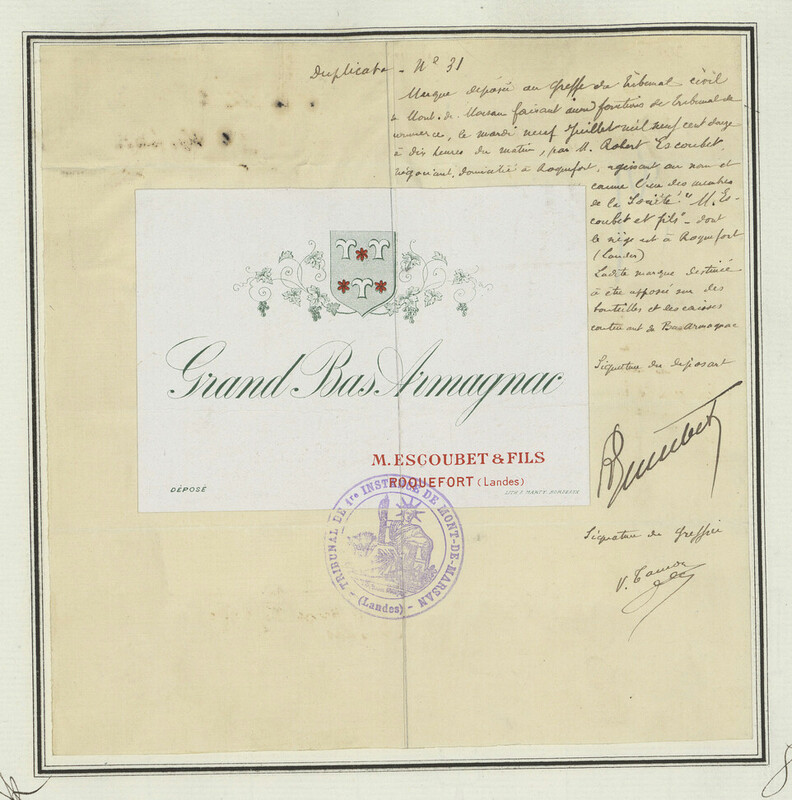 Duplicata - Nº 31
Marque déposée au Greffe du Tribunal civil
de Mont-de-Marsan faisant fonctions de tribunal de
commerce, le mardi neuf Juillet mil neuf cent douze
à dix heures du matin, par M. Robert Escoubet
négociant, domicilié à Roquefort, agissant au nom et
comme l'un des membres
de la Société "M. Es-
coubet et fils" - dont
le siège est à Roquefort
(Landes)
Ladite marque destinée
à être apposée sur des
bouteilles et des caisses
contenant de Bas Armagnac
Signature du déposant
Signature du Greffier
Grand Bas Armagnac
M. ESCOUBET & FILS
ROQUEFORT (Landes)
DÉPOSÉ
TRIBUNAL DE 1re INSTANCE DE MONT-DE-MARSAN
(Landes)